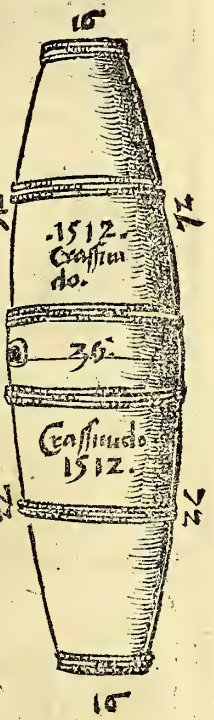 16
.1512.
Crassitu
do.
36
Crassitudo
1512.
16